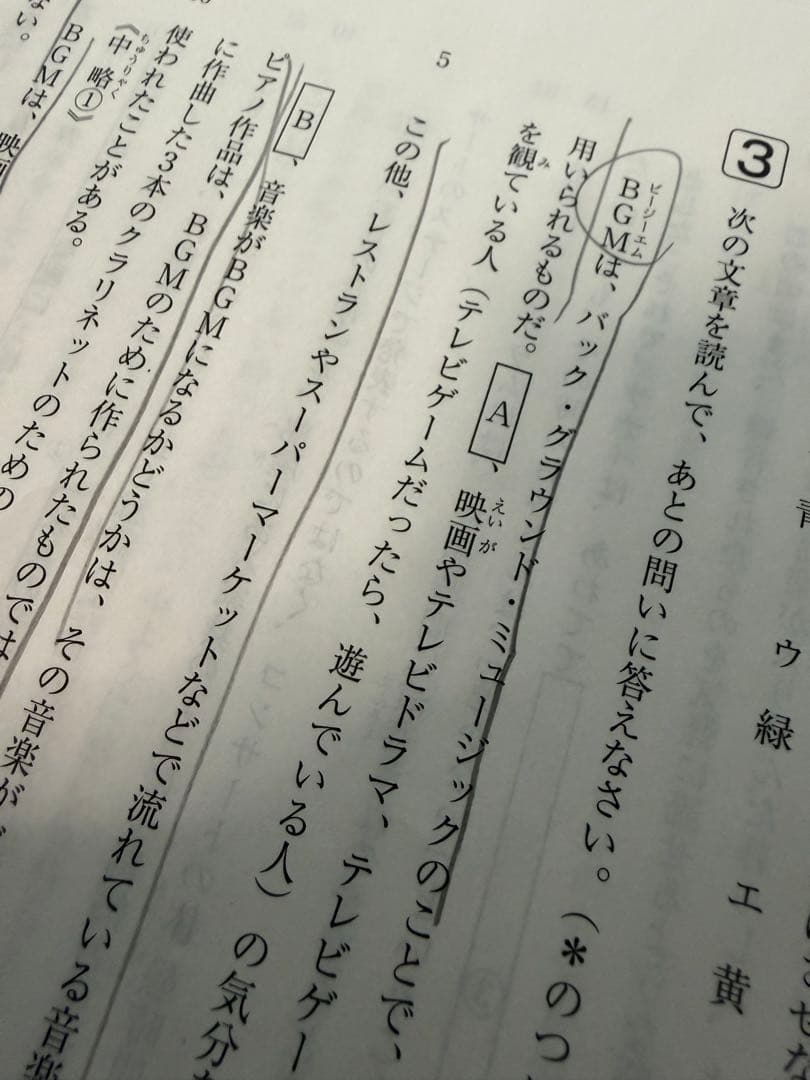 青
ウ 緑
エ 黄
3 次の文章を読んで、あとの問いに答えなさい。(*のつ
BGMは、バック・グラウンド・ミュージックのことで、
ビージーエム
用いられるものだ。 A 、映画やテレビドラマ、テレビゲー
えいが
を観ている人(テレビゲームだったら、遊んでいる人)の気分
み
5
この他、レストランやスーパーマーケットなどで流れている音楽
B 、音楽がBGMになるかどうかは、その音楽が
ピアノ作品は、BGMのために作られたものでは
に作曲した3本のクラリネットのための
使われたことがある。
《中略①》
ちゅうりゃく
BGMは、映画
ない。